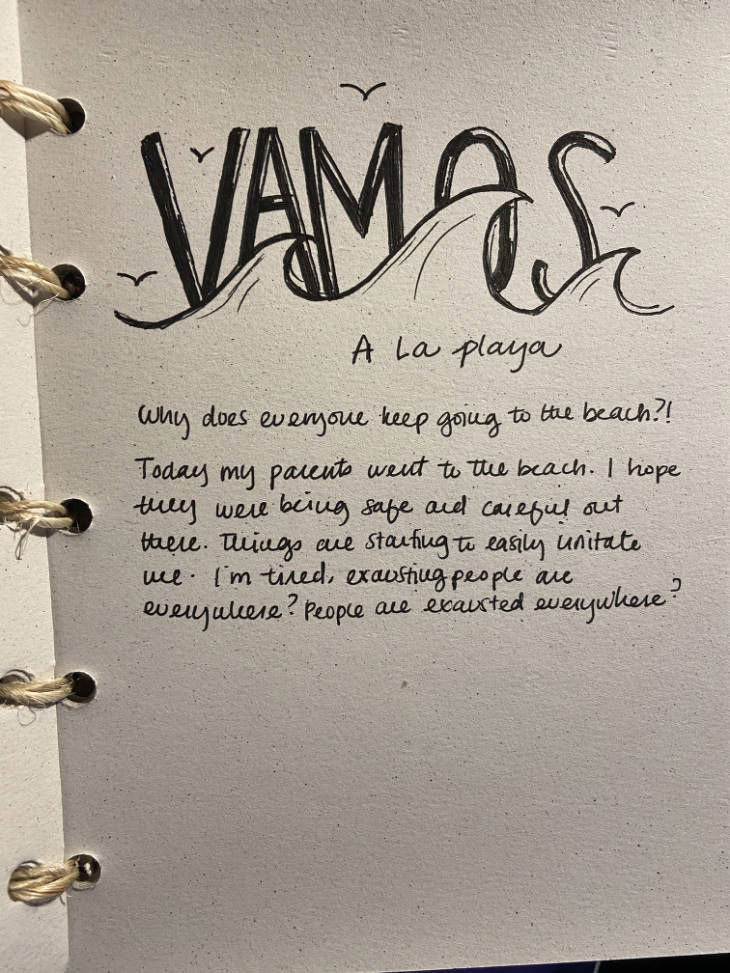 VAMOS
A La playa
Why does everyone keep going to the beach?!
Today my parents went to the beach. I hope
they were being safe and careful out
there. Things are starting to easily irritate
me. I'm tired, exausting people are
everywhere? People are exausted everywhere?